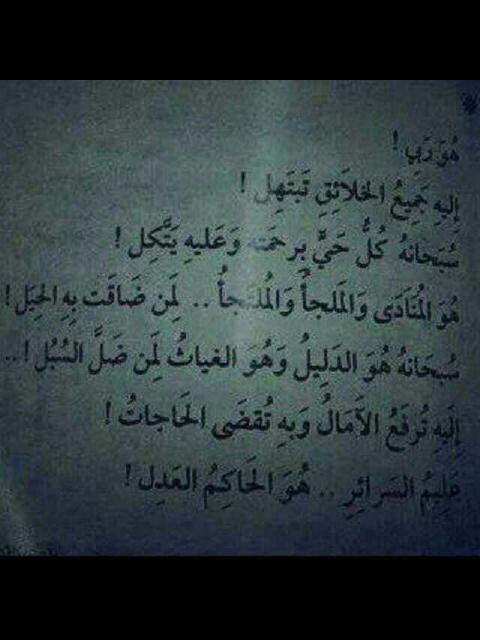 هُوَ رَبِي !
إِليهِ جَمِيعُ الخَلَائِقِ تَبتَهِل !
سُبَحانهُ كُلُّ حَيٍّ بِرحمَتهِ وَعَليهِ يَتَّكِل !
هُوَ المُنَادَى وَالمَلجأُ وَالمُلتَجأُ .. لِمَن ضَاقَت بِهِ الحِيَل !
سُبحَانهُ هُوَ الدَلِيلُ وَهُوَ الغياثُ لِمَن ضَلَّ السُبُل ! ..
إِلَيهِ تُرفَعُ الآمَالُ وَبهِ تُقضَى الحَاجاتُ !
عَلِيمُ السَرائرِ .. هُوَ الحَاكِمُ العَدِل !